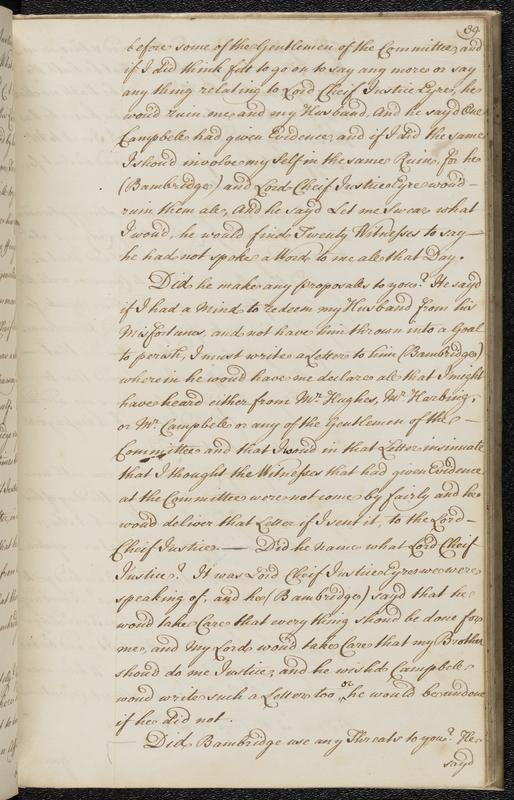 89
before some of the Gentlemen of the Committee, and
if I did think fitt to go on to say any more or say
any thing relating to Lord Cheif Justice Eyre, he
woud ruin me and my Husband, And he sayd One
Campbell had given Evidence, and if I did the same
I shoud involve my self in the same Ruin, for he
(Bambridge) and Lord Cheif Justice Eyre woud
ruin them all, And he sayd Let me Swear what
I woud, he would find Twenty Witnesses to say
he had not spoke a Word to me all that Day.
Did he make any proposals to you? He sayd
if I had a Mind to redeem my Husband from his
Misfortunes, and not have him thrown into a Goal
to perish, I must write a Letter to him (Bambridge)
wherein he would have me declare all that I might
have heard either from Mr. Hughes, Mr. Harbing,
or Mr. Campbell or any of the Gentlemen of the
Committee and that I woud in that Letter insinuate
that I thought the Witnesses that had given Evidence
at the Committee were not come by fairly and he
woud deliver that Letter if I sent it, to the Lord
Cheif Justice — Did he Name what Lord Cheif
Justice? It was Lord Cheif Justice Eyre we were
speaking of, and he (Bambridge) sayd that he
woud take Care that every thing shoud be done for
me, and My Lord woud take Care that my Brother
shoud do me Justice, and he wish'd Campbell
woud write such a Letter too or he woud be undone
if he did not.
Did Bambridge use any Threats to you? He
sayd